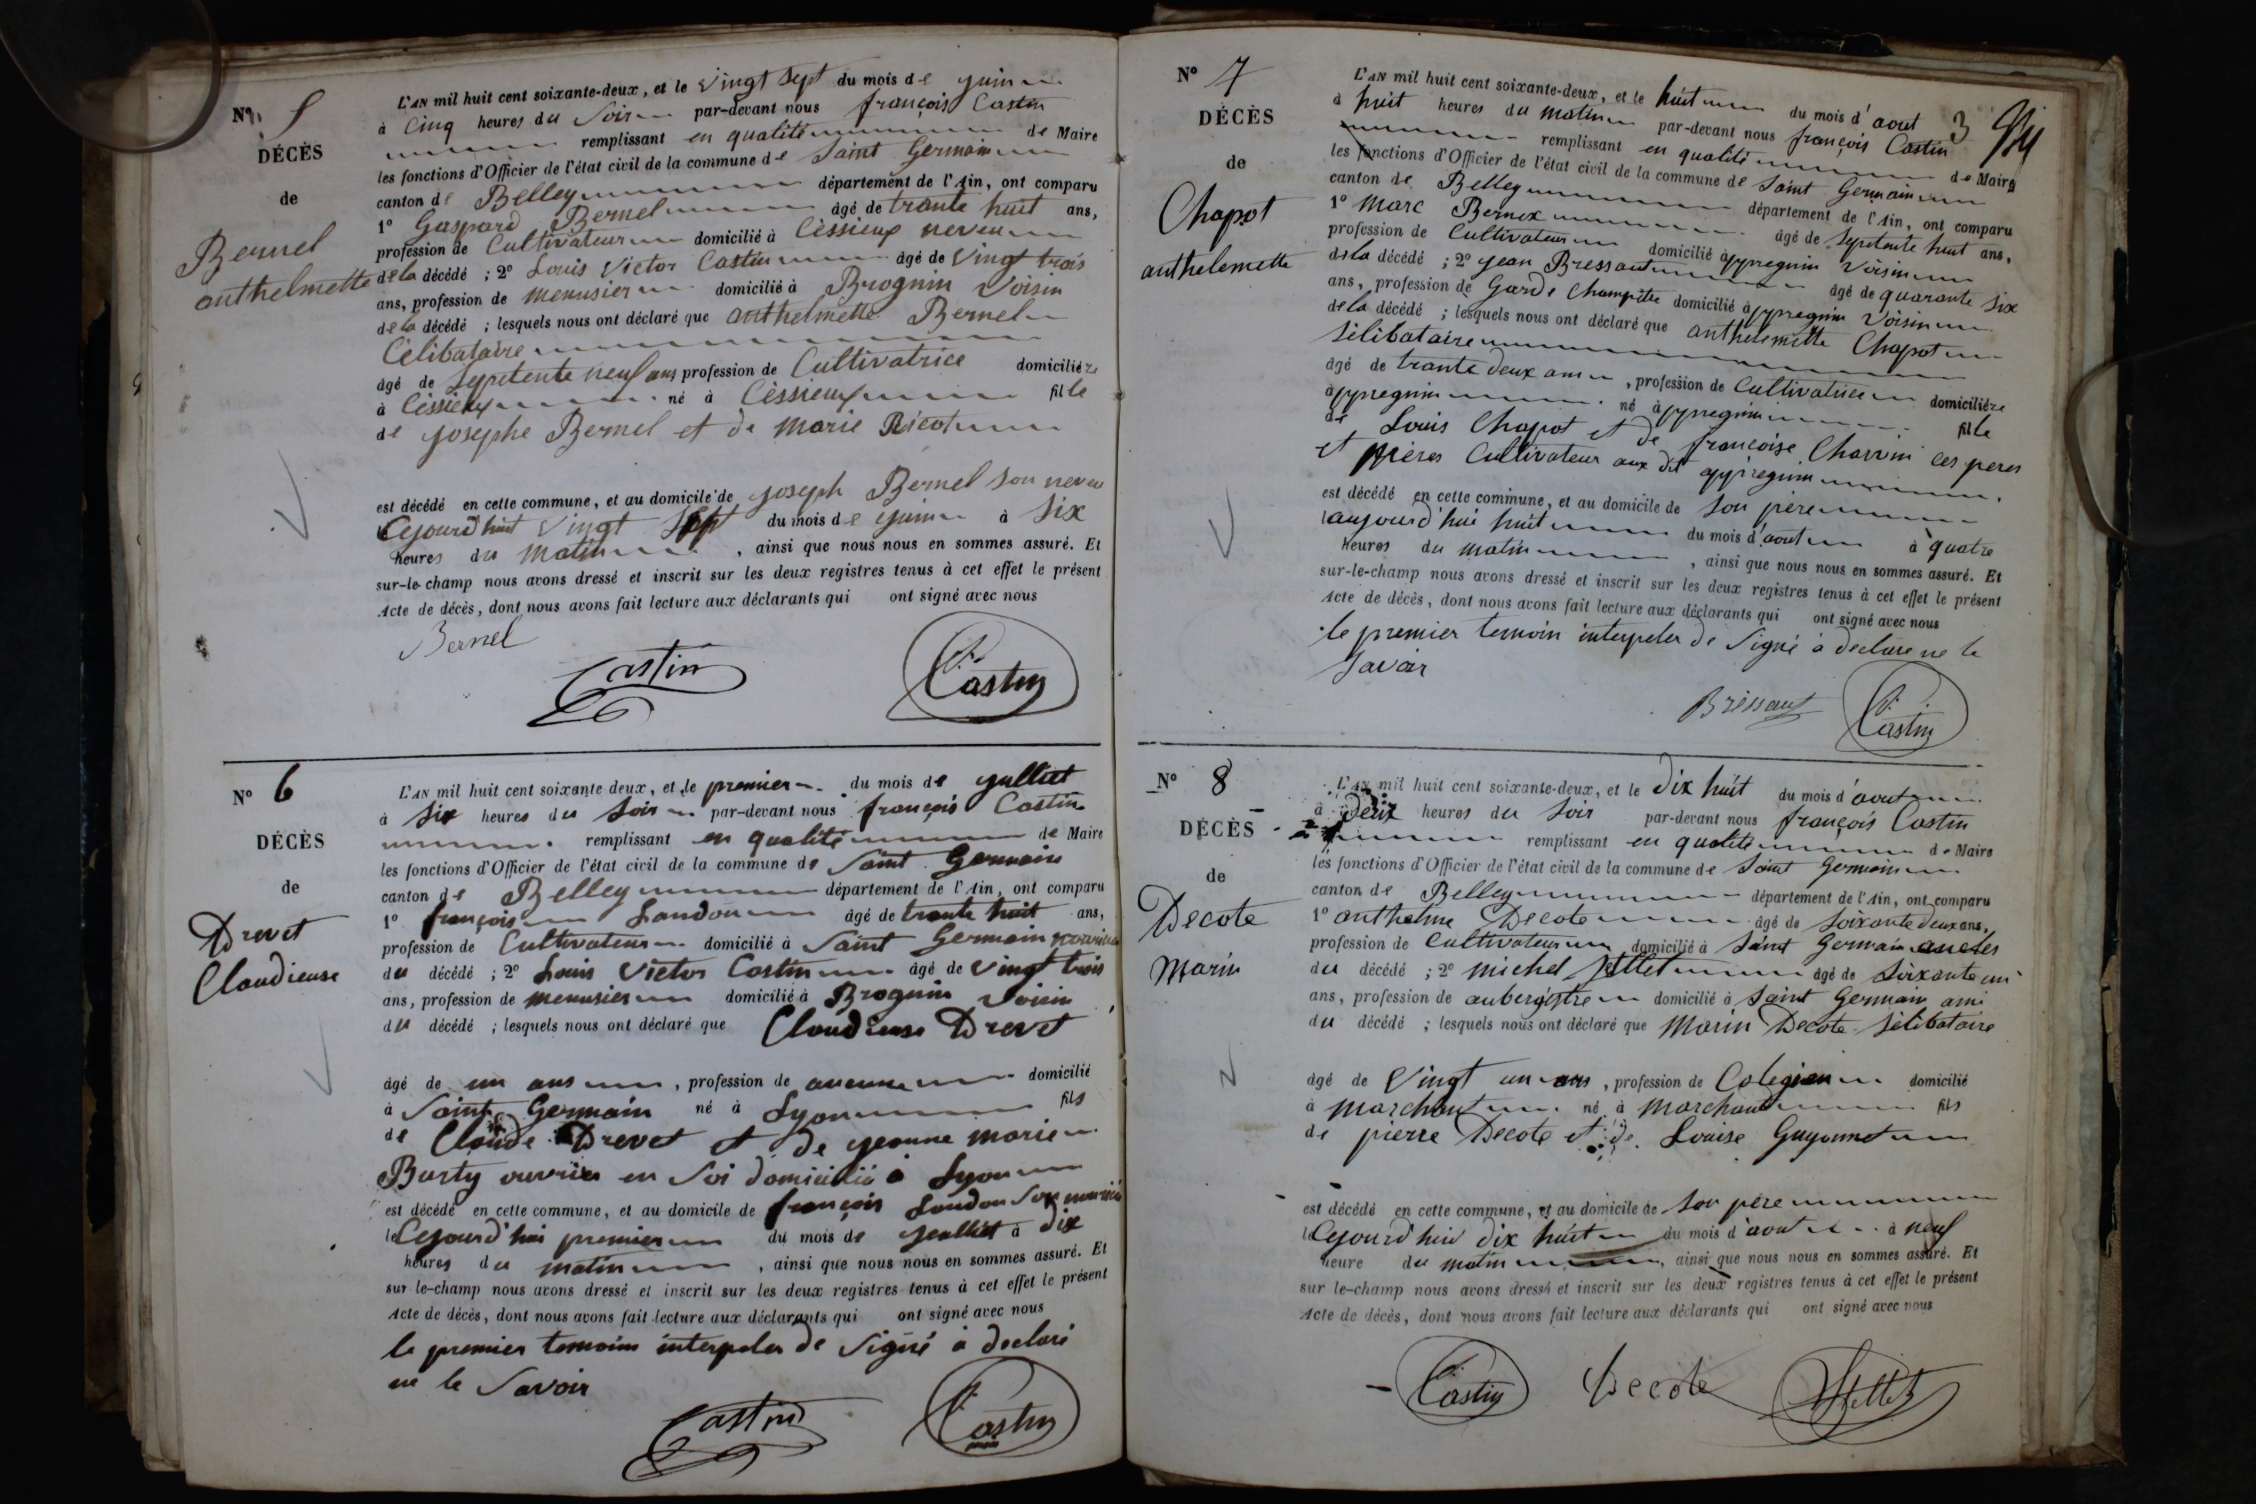 Nº 5
DÉCÈS
de
Bernel
anthelmette
L'AN mil huit cent soixante-deux, et le vingt sept du mois de juin
à Cinq heures du Soir par-devant nous françois Castin
remplissant en qualité de Maire
les fonctions d'Officier de l'état civil de la commune de Saint Germain
canton de Belley département de l'Ain, ont comparu
1º Gaspard Bernel âgé de trante huit ans,
profession de Cultivateur domicilié à Céssieux neveu
de la décédé ; 2º Louis Victor Castin âgé de Vingt trois
ans, profession de menusier domicilié à Brognin Voisin
de la décédé ; lesquels nous ont déclaré que anthelmette Bernel
Célibataire
âgé de Sepetente neuf ans profession de Cultivatrice domiciliéze
à Céssieux né à Céssieux fille
de josephe Bernel et de marie Ricot
est décédé en cette commune, et au domicile de joseph Bernel son neveu
le Cejourd'huit vingt Sept du mois de juin à Six
heures du Matin , ainsi que nous nous en sommes assuré. Et
sur-le-champ nous avons dressé et inscrit sur les deux registres tenus à cet effet le présent
Acte de décès, dont nous avons fait lecture aux déclarants qui ont signé avec nous
Bernel
Castin
Castin
Nº 6
DÉCÈS
de
Drevet
Claudieuse
L'AN mil huit cent soixante-deux, et le premier du mois de julliet
à Six heures du Soir par-devant nous françois Castin
remplissant en qualité de Maire
les fonctions d'Officier de l'état civil de la commune de Saint Germain
canton de Belley département de l'Ain, ont comparu
1º françois Landon âgé de trante huit ans,
profession de Cultivateur domicilié à Saint Germain
du décédé ; 2º Louis Victor Castin âgé de vingt trois
ans, profession de menusier domicilié à Brognin Voisin
du décédé ; lesquels nous ont déclaré que Claudieuse Drevet
âgé de un ans , profession de aucune domicilié
à Saint Germain né à Lyon fils
de Claude Drevet et de jeanne marie
Burty ouvrier en Soi domicilié à Lyon
est décédé en cette commune, et au domicile de françois Landon Son
le Cejourd'hui premier du mois de jeulliet à dix
heures du matin , ainsi que nous nous en sommes assuré. Et
sur le-champ nous avons dressé et inscrit sur les deux registres tenus à cet effet le présent
Acte de décès, dont nous avons fait lecture aux déclarants qui ont signé avec nous
le premier temoin interpeler de Signé à declaré
ne le Savoir
Castin
Castin
Nº 7
DÉCÈS
de
Chapot
anthelemette
3
L'AN mil huit cent soixante-deux, et le huit du mois d'aout
à huit heures du matin par-devant nous françois Castin
remplissant en qualité de Maire
les fonctions d'Officier de l'état civil de la commune de Saint Germain
canton de Belley département de l'Ain, ont comparu
1º Marc Bernex âgé de Sepetente huit ans,
profession de Cultivateur domicilié appregnin Voisin
de la décédé ; 2º jean Bressaut âgé de quarante Six
ans, profession de Garde Champitre domicilié appregnin Voisin
de la décédé ; lesquels nous ont déclaré que anthelemette Chapot
Sélibataire
âgé de trante deux ans , profession de Cultivatrice domiciliéze
appregnin né appregnin fille
de Louis Chapot et de françoise Charvin ces peres
et mères Cultivateur aux dit appregnin
est décédé en cette commune, et au domicile de Son père
aujourd'hui huit du mois d'aout à quatre
heures du matin , ainsi que nous nous en sommes assuré. Et
sur-le-champ nous avons dressé et inscrit sur les deux registres tenus à cet effet le présent
Acte de décès, dont nous avons fait lecture aux déclarants qui ont signé avec nous
le premier temoin interpeler de Signé à declare ne le
Savoir
Bressaut
Castin
Nº 8
DÉCÈS
de
Decote
Marin
L'AN mil huit cent soixante-deux, et le dix huit du mois d'aout
à deux heures du Soir par-devant nous françois Castin
remplissant en qualité de Maire
les fonctions d'Officier de l'état civil de la commune de Saint Germain
canton de Belley département de l'Ain, ont comparu
1º anthelme Decote âgé de Soixante deux ans,
profession de Cultivateur domicilié à Saint Germain
du décédé ; 2º michel Jullet âgé de Soixante un
ans, profession de aubergistre domicilié à Saint Germain ami
du décédé ; lesquels nous ont déclaré que Marin Decote Sélibataire
âgé de Vingt un ans , profession de Colegien domicilié
à Marchant né à Marchant fils
de pierre Decote et de Louise Guyonnet
est décédé en cette commune, et au domicile de Son père
le Cejourd'hui dix huit du mois d'aout à neuf
heure du matin , ainsi que nous nous en sommes assuré. Et
sur le-champ nous avons dressé et inscrit sur les deux registres tenus à cet effet le présent
Acte de décès, dont nous avons fait lecture aux déclarants qui ont signé avec nous
Castin
Decote